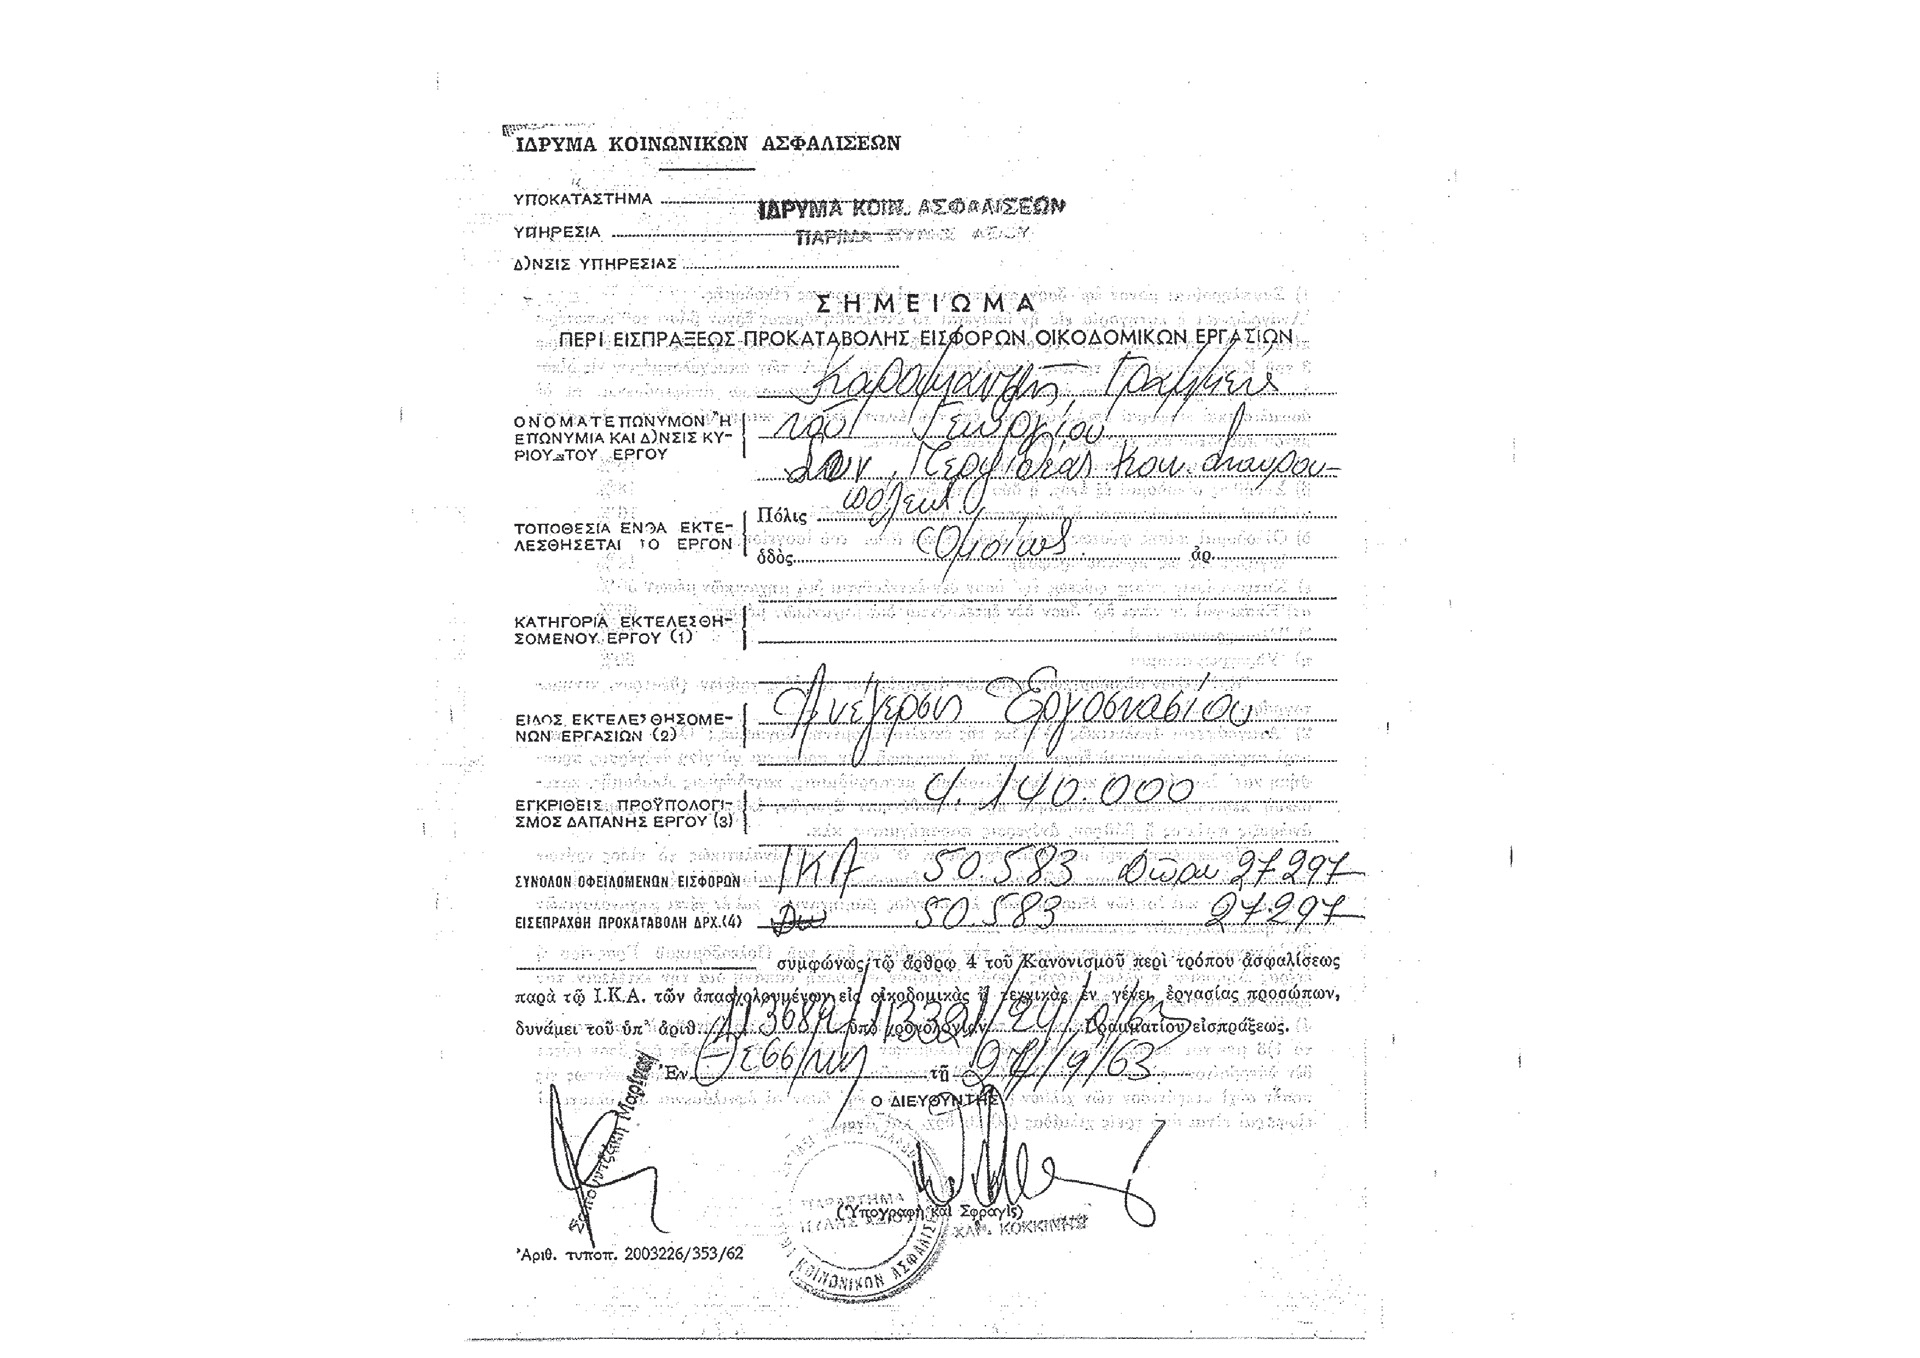 ΙΔΡΥΜΑ ΚΟΙΝΩΝΙΚΩΝ ΑΣΦΑΛΙΣΕΩΝ
ΥΠΟΚΑΤΑΣΤΗΜΑ
ΙΔΡΥΜΑ ΚΟΙΝ. ΑΣΦΑΛΙΣΕΩΝ
ΥΠΗΡΕΣΙΑ
Δ)ΝΣΙΣ ΥΠΗΡΕΣΙΑΣ
ΣΗΜΕΙΩΜΑ
ΠΕΡΙ ΕΙΣΠΡΑΞΕΩΣ ΠΡΟΚΑΤΑΒΟΛΗΣ ΕΙΣΦΟΡΩΝ ΟΙΚΟΔΟΜΙΚΩΝ ΕΡΓΑΣΙΩΝ
ΟΝΟΜΑΤΕΠΩΝΥΜΟΝ Ἢ
ΕΠΩΝΥΜΙΑ ΚΑΙ Δ)ΝΣΙΣ ΚΥ-
ΡΙΟΥ ΤΟΥ ΕΡΓΟΥ
τοῦ Γεωργίου
Σταυρου-
πόλεως
ΤΟΠΟΘΕΣΙΑ ΕΝΘΑ ΕΚΤΕ-
ΛΕΣΘΗΣΕΤΑΙ ΤΟ ΕΡΓΟΝ
Πόλις
ὁδὸς Ὁμοίως ἀρ.
ΚΑΤΗΓΟΡΙΑ ΕΚΤΕΛΕΣΘΗ-
ΣΟΜΕΝΟΥ ΕΡΓΟΥ (1)
ΕΙΔΟΣ ΕΚΤΕΛΕΣΘΗΣΟΜΕ-
ΝΩΝ ΕΡΓΑΣΙΩΝ (2)
Ἀνέγερσις Ἐργοστασίου
ΕΓΚΡΙΘΕΙΣ ΠΡΟΫΠΟΛΟΓΙ-
ΣΜΟΣ ΔΑΠΑΝΗΣ ΕΡΓΟΥ (3)
4.140.000
ΣΥΝΟΛΟΝ ΟΦΕΙΛΟΜΕΝΩΝ ΕΙΣΦΟΡΩΝ ΙΚΑ 50.583 Δῶρα 27.297
ΕΙΣΕΠΡΑΧΘΗ ΠΡΟΚΑΤΑΒΟΛΗ ΔΡΧ.(4) 50.583 27.297
συμφώνως τῷ ἄρθρῳ 4 τοῦ Κανονισμοῦ περὶ τρόπου ἀσφαλίσεως
παρὰ τῷ Ι.Κ.Α. τῶν ἀπασχολουμένων εἰς οἰκοδομικὰς ἢ τεχνικὰς ἐν γένει ἐργασίας προσώπων,
δυνάμει τοῦ ὑπ' ἀριθ. ὑπὸ χρονολογίαν Γραμματίου εἰσπράξεως.
Ἐν Θεσ/νίκη τῇ 27/9/63
Ο ΔΙΕΥΘΥΝΤΗΣ
ΠΑΡΑΡΤΗΜΑ
ΚΟΙΝΩΝΙΚΩΝ ΑΣΦΑΛΙΣΕΩΝ
(Ὑπογραφὴ καὶ Σφραγὶς)
ΧΑΡ. ΚΟΚΚΙΝΗΣ
Ἀριθ. τυποπ. 2003226/353/62